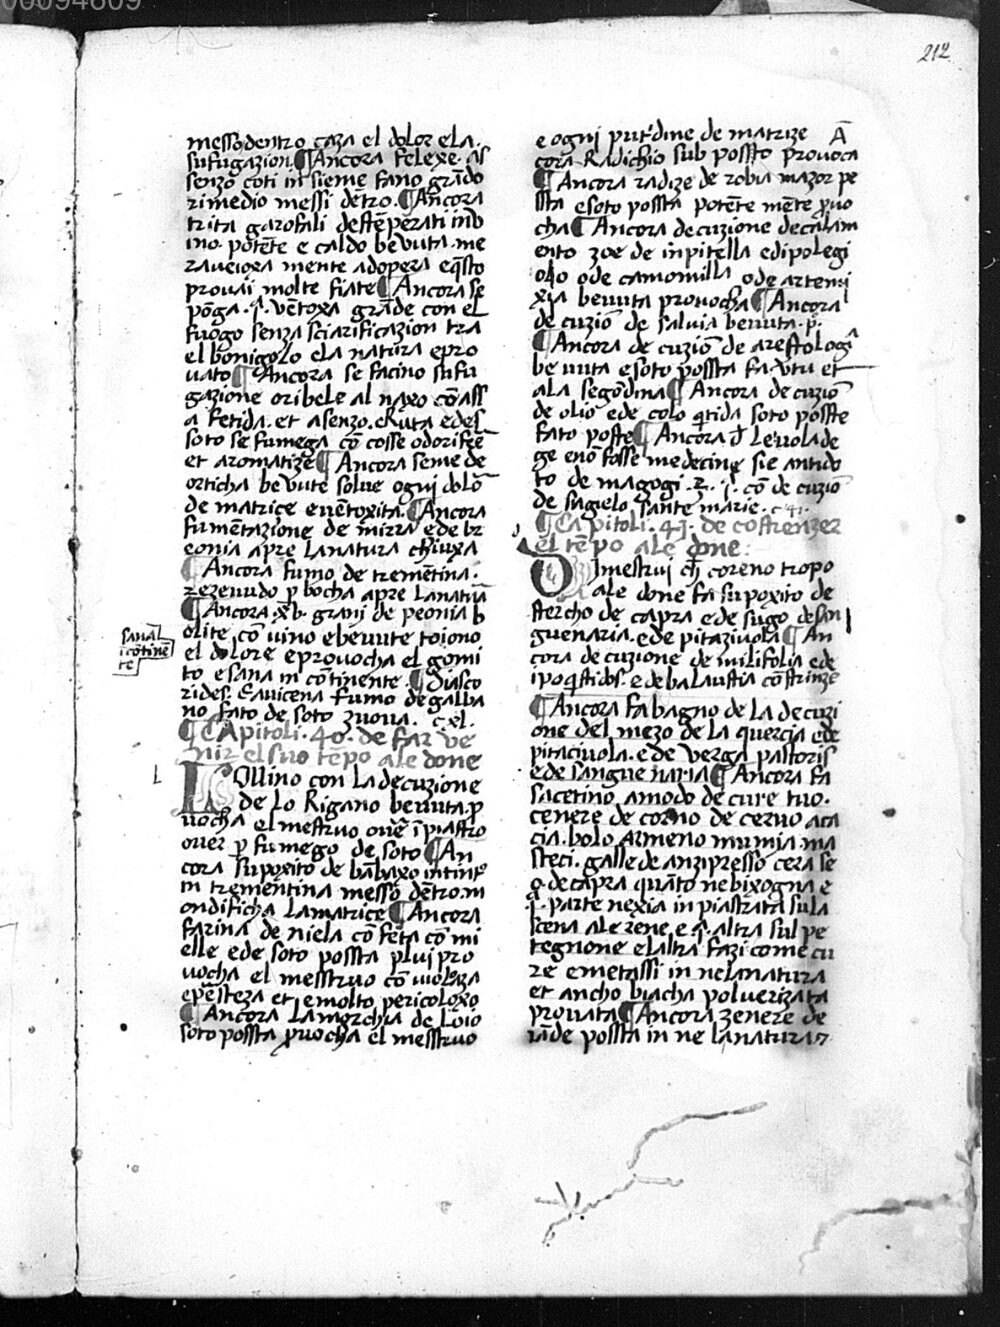 00094609
212
messo dentro caza el dolor e la
sufugazion. ¶ Ancora felexe. as
senzo coti insieme fano grãdo
rimedio messi dẽtro. ¶ Ancora
trita garofali destẽperati in b
ino. potẽte e caldo bevuta. me
raveiora mente adopera e q̃sto
provai molte fiate ¶ Ancora se
põga .j. vẽtoxa grãde con el
fuogo senza sciarificazion tra
el bonigolo e la natura e pro
vato ¶ Ancora se facino sufu
gazione oribele al naxo cõ ass
a fetida. et asenzo. e Ruta e del
soto se fumega cõ cosse odorifee
et aromatize ¶ Ancora seme de
orticha bevute solve ogni dolõ
de matrice e vẽtoxita. ¶ Ancora
fumẽtazione de mirra e de br
eonia apre la natura chiuxa
¶ Ancora fumo de tremẽtina.
rezevudo p bocha apre la natũa
¶ Ancora .xv. grani de peonia b
olite cõ vino e bevute toiono
el dolore e provocha el gomi
to e sana in cõtinente. ¶ Diasco
rides. E avicena fumo de galba
no fato de soto zuova. c. xl.
sana
i cõtinẽ
te
¶ Capitoli. 40. de far ve
nir el suo tẽpo a le done
l
Ollino con la decuzione
de lo Rigano bevuta p
vocha el mestruo ovẽ ĩ piastro
over p fumego de soto ¶ An
cora supoxito de bãbaxo intinto
in trementina messo dẽtro. m
ondificha la matrice ¶ Ancora
farina de niela cõ feta cõ mi
elle e de soto possta plui pro
vocha el messtruo cõ violeza
e pẽsteza et e molto pericoloxo
¶ Ancora la morchia de l oio
soto possta pvocha el messtruo
e ogni putdine de matrize A
cora Radichio sub possto provoca
¶ Ancora radize de robia mazor pe
sta e soto possta potẽte mẽte pvo
cha ¶ Ancora decuzione de calam
ento zoe de inpitella e di polegi
olio o de camomilla o de artemi
xia bevuta provocha ¶ Ancora
de cuziõ de salvia bevuta. p.
¶ Ancora de cuziõ de arestologi
bevuta e soto possta fa vtu et
a la segõdina ¶ Ancora de cuziõ
de olio e de colo qtida soto posste
fato poste ¶ Ancora
ge e nõ fosse medecine sie antido
to de magogi .z. j. cõ de cuziõ
de sagielo sante marie. c 41.
¶ Capitoli. 41. de costrenzer
el tẽpo a le done:
I mestrui ch coreno tropo
a le done fa supoxito de
stercho de capra e de sugo de san
guenaria. e de pitaziuola ¶ An
cora de cuzione de milifolia e de
ipoqstidos. e de balaustia cõstrinze
¶ Ancora fa bagno de la decuzi
one del mezo de la quercia e de
pitaciuola. e de verga pastoris
e de sanguenaria ¶ Ancora fa
sacetino a modo de cure tuo.
cenere de corno de cervo aca
cia. bolo armeno mumia ma
steci. galle de anzipresso cera se
o. de capra quãto ne bixogna e
j. parte nexia in piastrata su la
scena a le rene. e j. altra sul pe
tegnone e l altra fazi come cu
re e metassi in ne la natura
et ancho biacha polverizata
provata ¶ Ancora zenere de
iãde possta in ne la natura